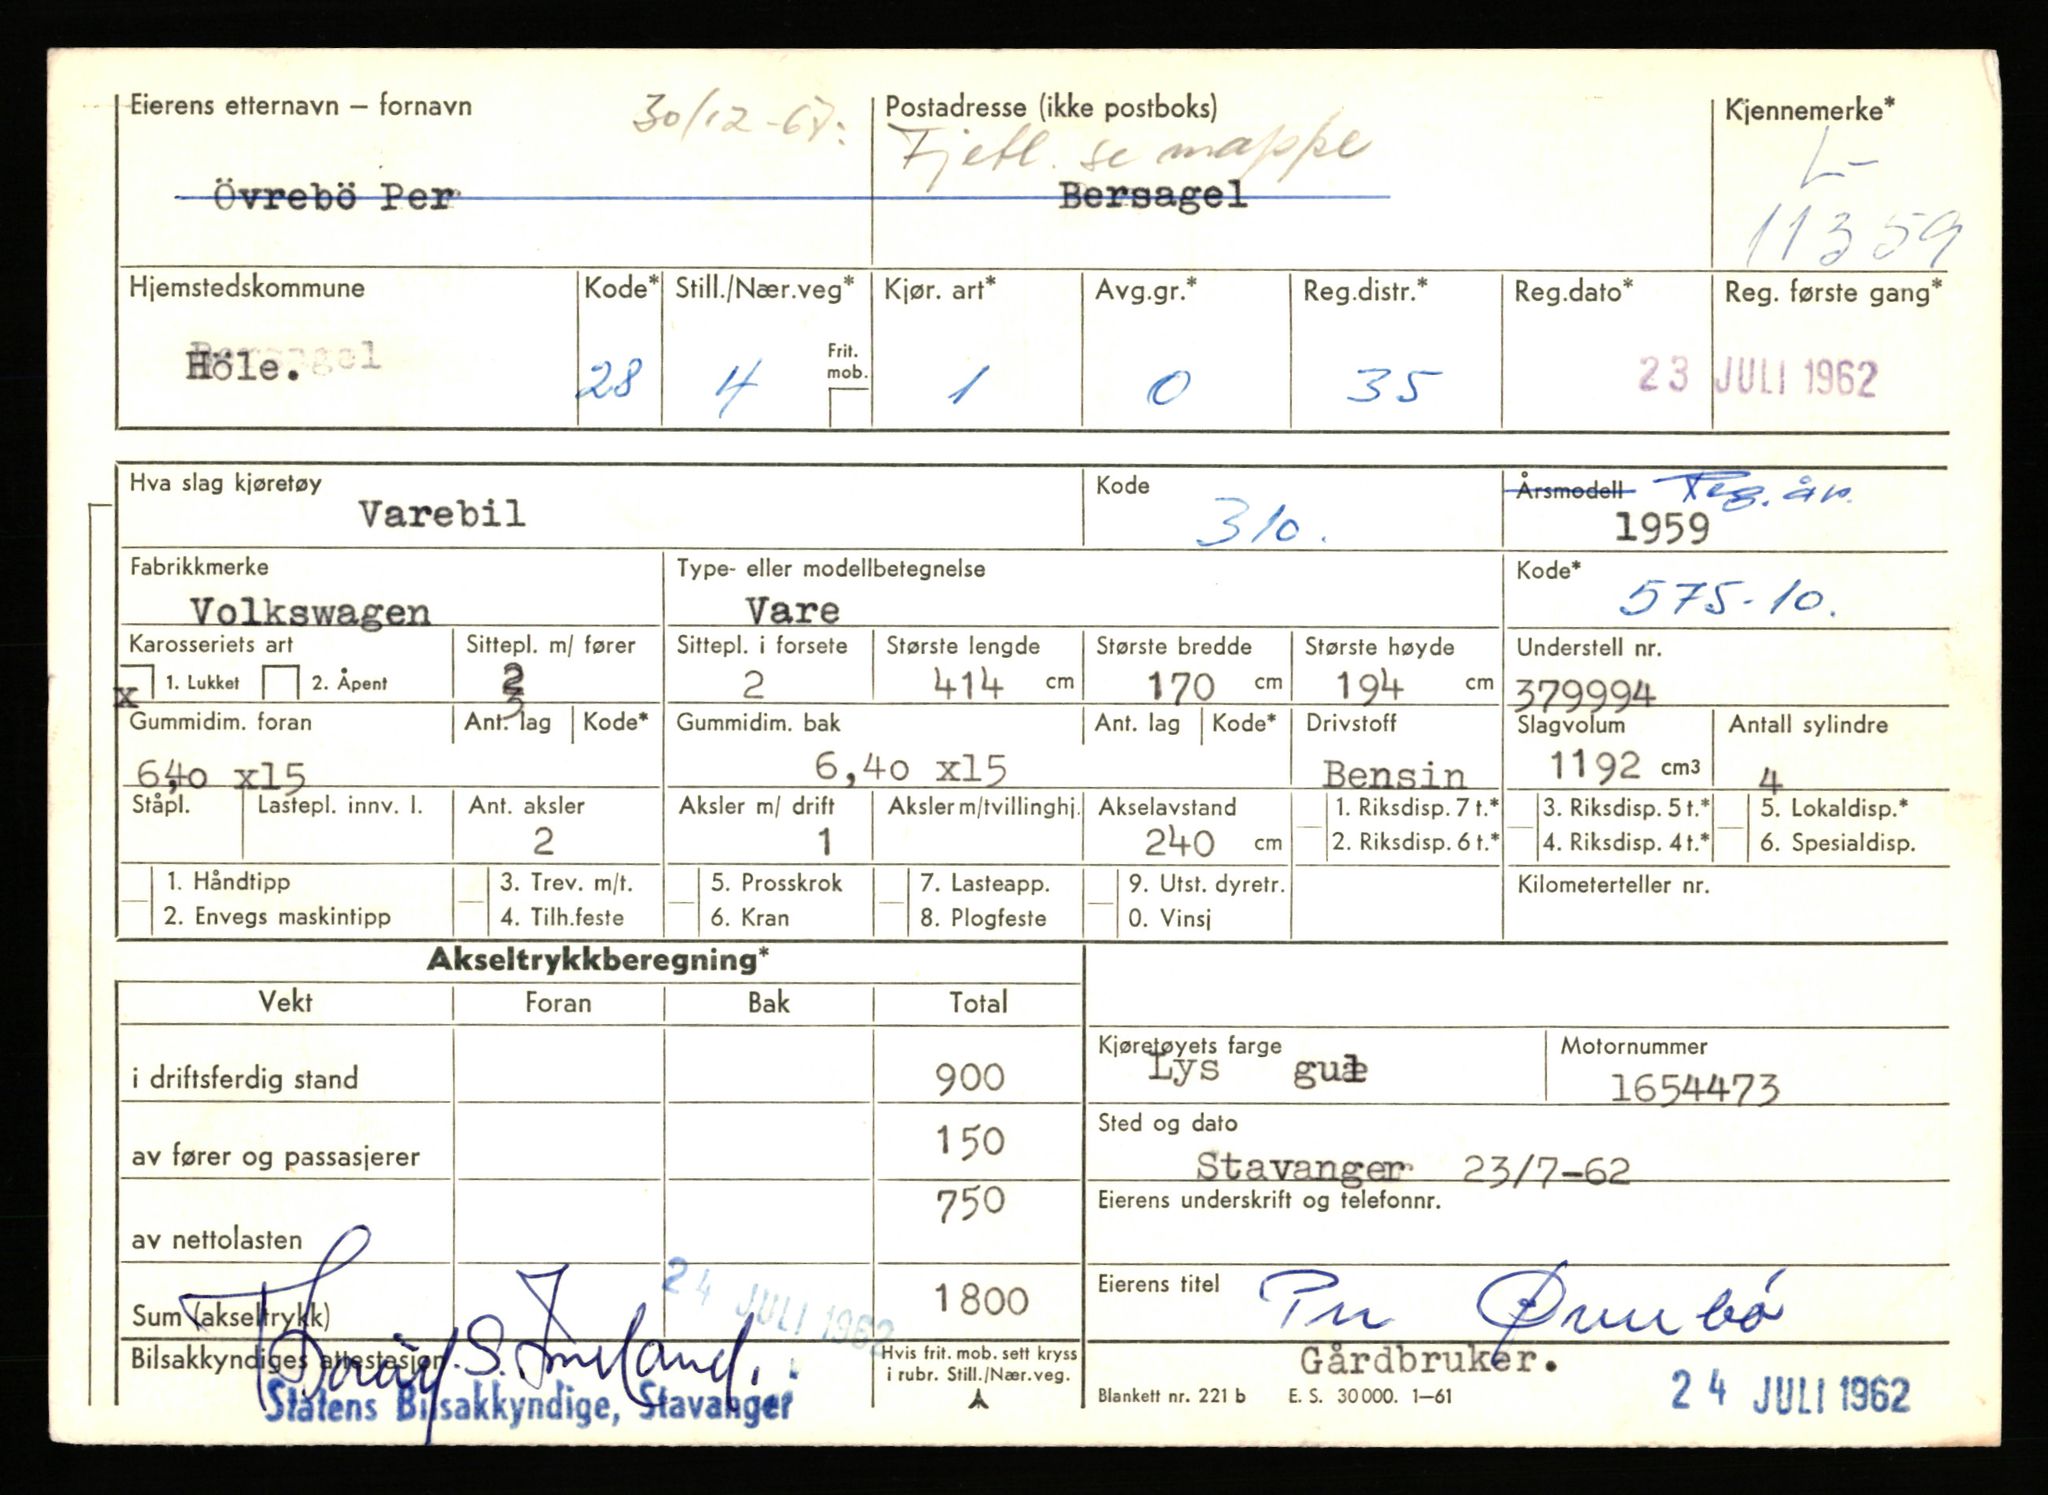 Eierens etternavn – fornavn 30/12-67. Postadresse (ikke postboks) Kjennemerke*
Fjetl. se mappe L-
Övrebö Per Bersagel 11359
Hjemstedskommune Kode* Still./Nær.veg* Kjør. art* Avg.gr.* Reg.distr.* Reg.dato* Reg. første gang*
Bersagel
Höle. 28 4 Frit. mob. 1 0 35 23 JULI 1962
Hva slag kjøretøy Kode Årsmodell Reg. år.
Varebil 310. 1959
Fabrikkmerke Type- eller modellbetegnelse Kode*
Volkswagen Vare 575-10.
Karosseriets art Sittepl. m/ fører Sittepl. i forsete Største lengde Største bredde Største høyde Understell nr.
x 1. Lukket 2. Åpent 2 2 414 cm 170 cm 194 cm 379994
Gummidim. foran Ant. lag Kode* Gummidim. bak Ant. lag Kode* Drivstoff Slagvolum Antall sylindre
6,40 x15 6,40 x15 Bensin 1192 cm3 4
Ståpl. Lastepl. innv. l. Ant. aksler Aksler m/ drift Aksler m/tvillinghj. Akselavstand 1. Riksdisp. 7 t.* 3. Riksdisp. 5 t.* 5. Lokaldisp.*
2 1 240 cm 2. Riksdisp. 6 t.* 4. Riksdisp. 4 t.* 6. Spesialdisp.
1. Håndtipp 3. Trev. m/t. 5. Prosskrok 7. Lasteapp. 9. Utst. dyretr. Kilometerteller nr.
2. Envegs maskintipp 4. Tilh.feste 6. Kran 8. Plogfeste 0. Vinsj
Akseltrykkberegning*
Vekt Foran Bak Total
i driftsferdig stand 900
av fører og passasjerer 150
av nettolasten 750
Sum (akseltrykk) 1800
24 JULI 1962
Bilsakkyndiges attestasjon.
Statens Bilsakkyndige, Stavanger
Hvis frit. mob. sett kryss
i rubr. Still./Nær.veg.
Kjøretøyets farge Motornummer
Lys gul 1654473
Sted og dato
Stavanger 23/7-62
Eierens underskrift og telefonnr.
Eierens titel Per Øvrebö
Gårdbruker.
Blankett nr. 221 b E. S. 30 000. 1–61 24 JULI 1962